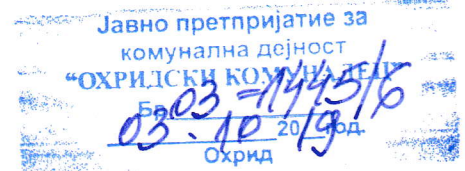 Јавно претпријатие за
комунална дејност
“ОХРИДСКИ КОМУНАЛЕЦ”
Бр. 03-1445/6
03.10 2019 год.
Охрид